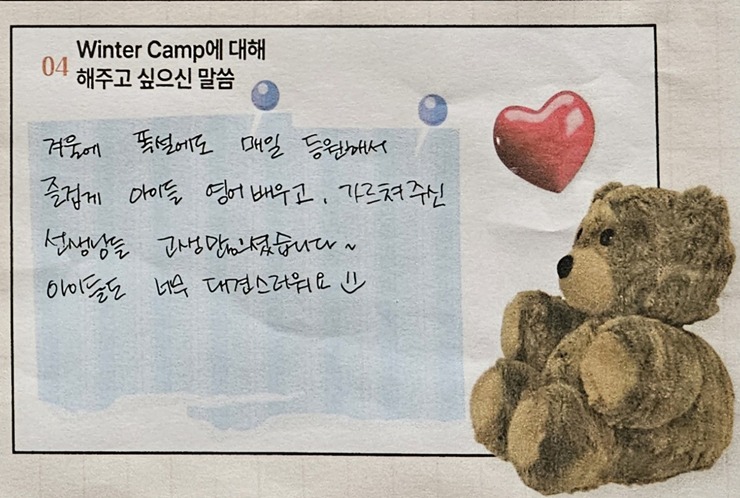 04
Winter Camp에 대해
해주고 싶으신 말씀
겨울에 폭설에도 매일 등원해서
즐겁게 아이들 영어 배우고, 가르쳐 주신
선생님들 고생많으셨습니다~
아이들도 너무 대견스러워요 :)